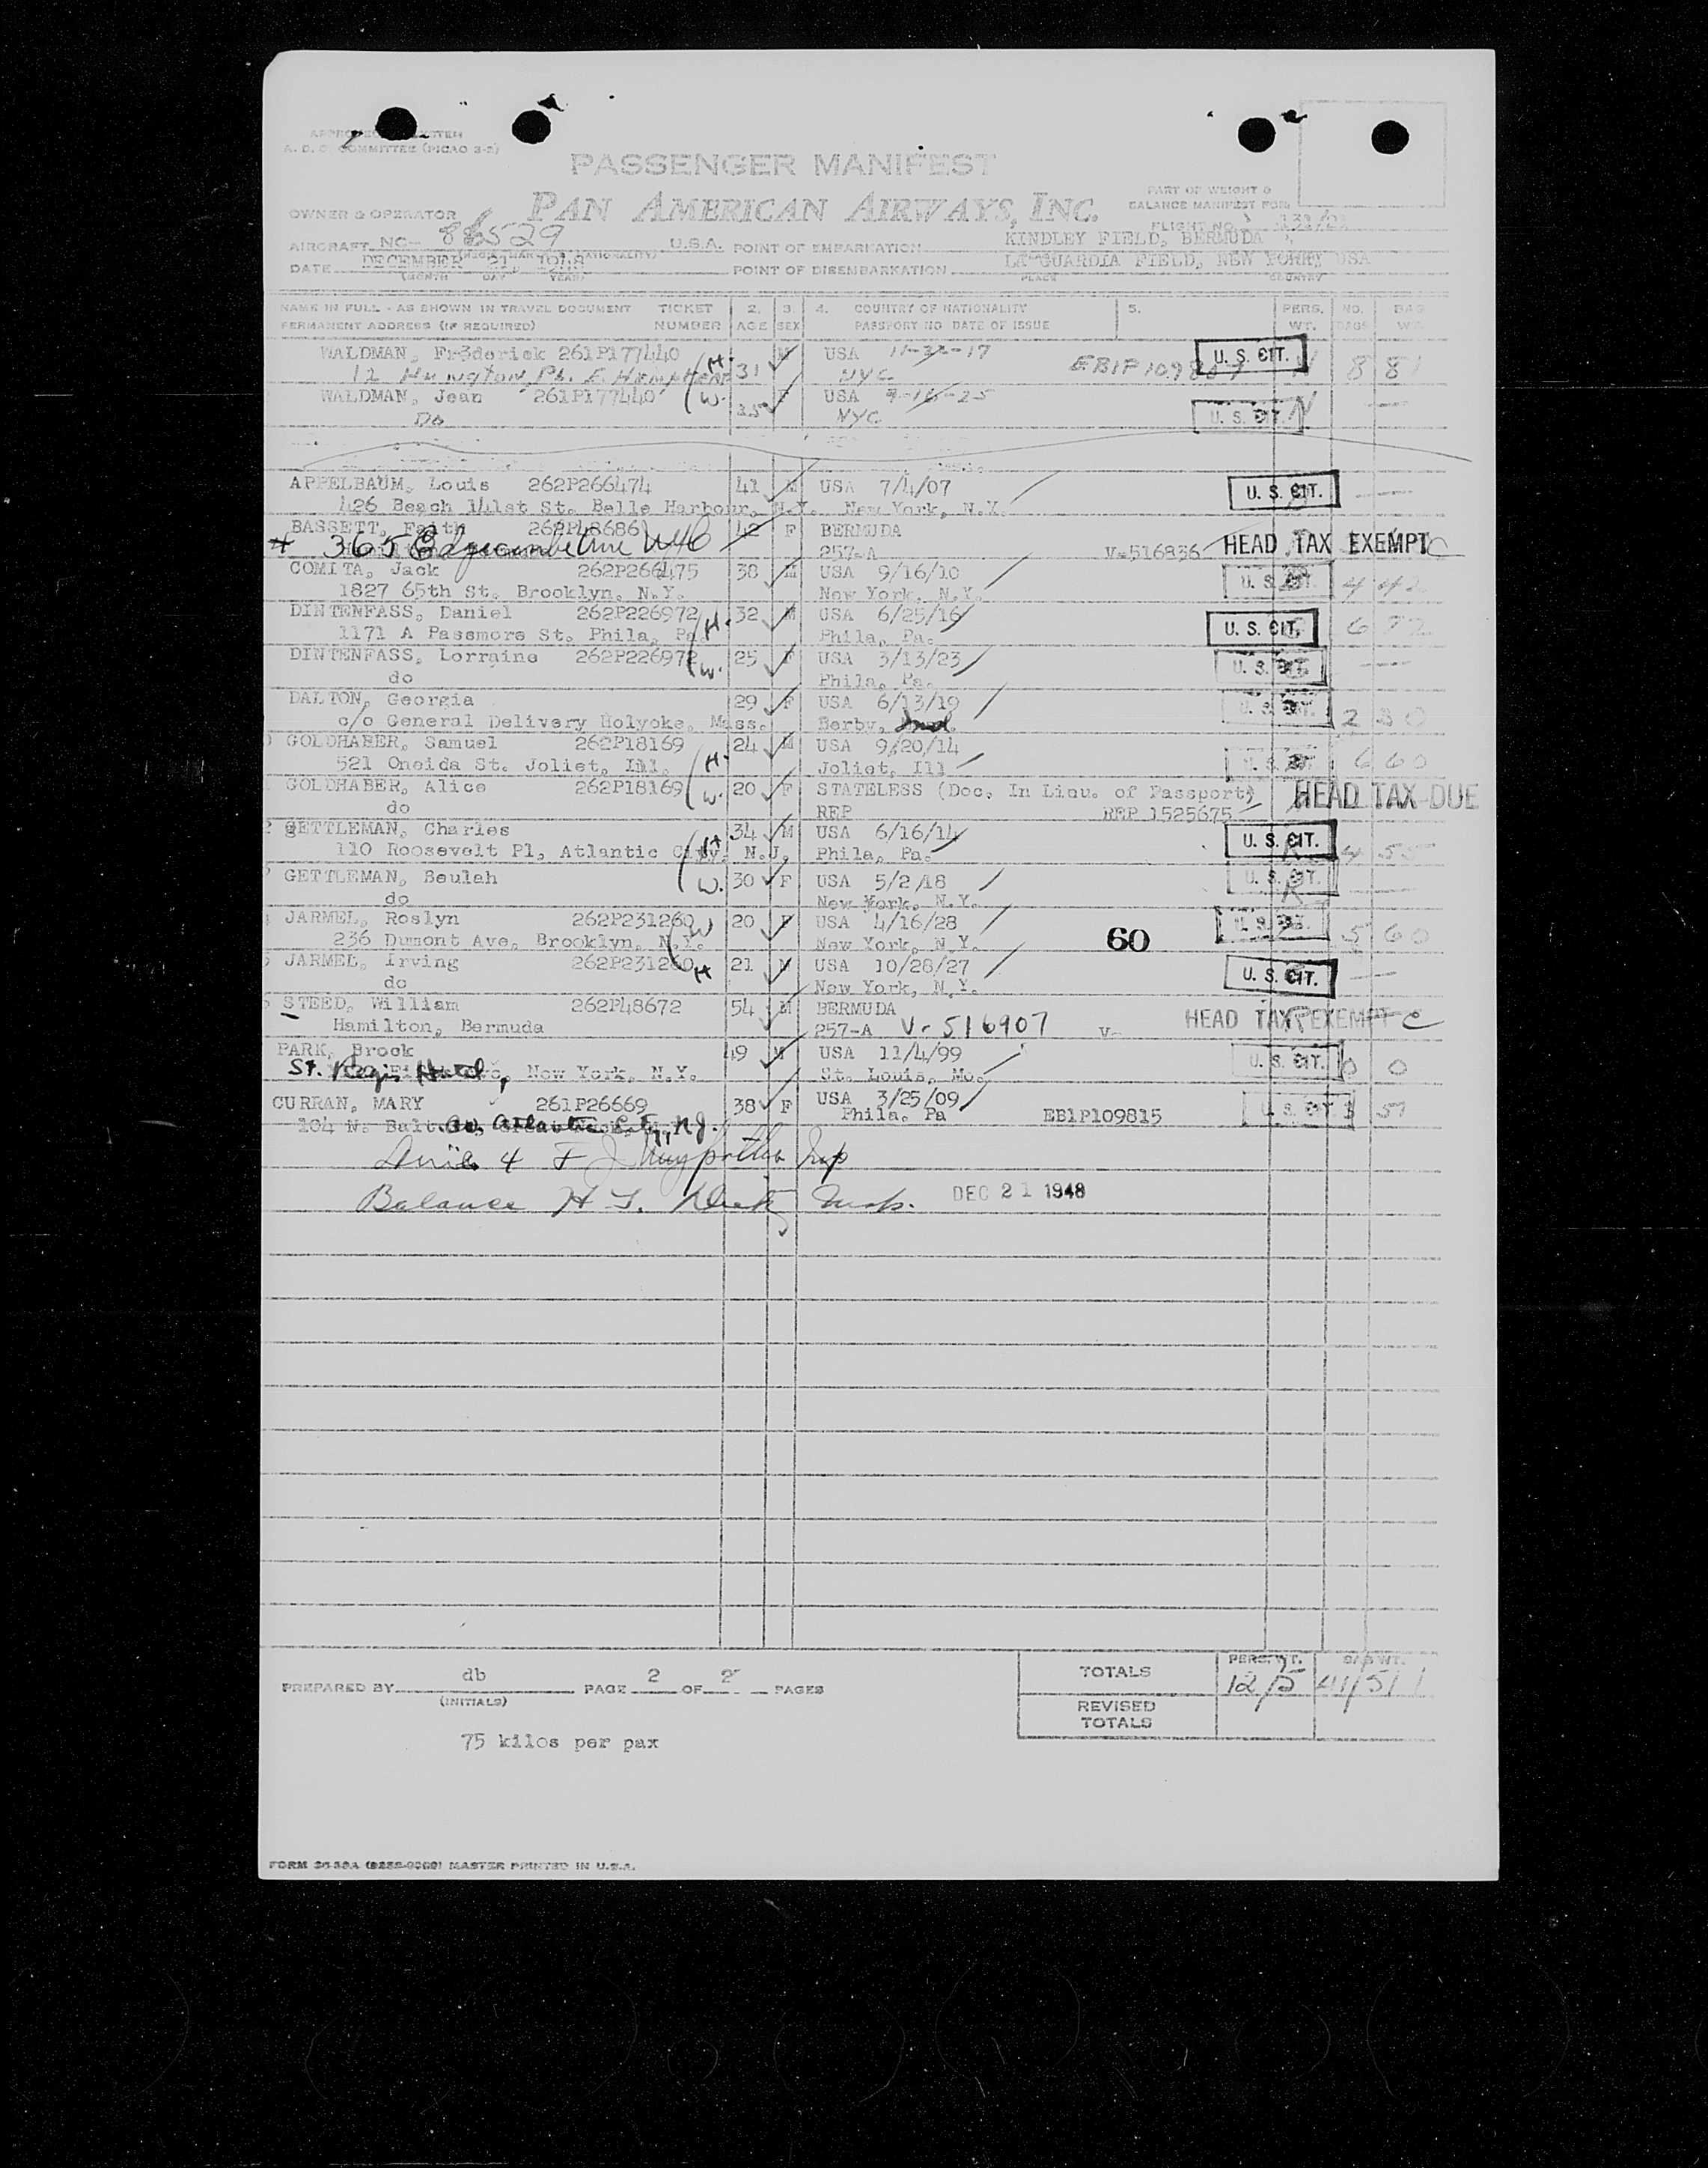 A. D. C. COMMITTEE (PICAO 3-2)
PASSENGER MANIFEST
PAN AMERICAN AIRWAYS, INC.
PART OF WEIGHT &
BALANCE MANIFEST FOR
FLIGHT NO. 131/21
OWNER & OPERATOR
AIRCRAFT NC- 88529 U.S.A. POINT OF EMBARKATION KINDLEY FIELD, BERMUDA
DATE DECEMBER 21, 1948 POINT OF DISEMBARKATION LA GUARDIA FIELD, NEW YORK USA
(MONTH) DAY YEAR) PLACE COUNTRY
NAME IN FULL - AS SHOWN IN TRAVEL DOCUMENT TICKET 2. 3. 4. COUNTRY OF NATIONALITY 5. PERS. NO. BAG
PERMANENT ADDRESS (IF REQUIRED) NUMBER AGE SEX PASSPORT NO DATE OF ISSUE WT. BAGS WT.
WALDMAN, Fr3derick 261P177440 H. 31 M USA 11-22-17 U. S. CIT.
12 NYC EB1P109807 8 81
WALDMAN, Jean 261P177440 W. 25 F USA 9-16-25
Do NYC U. S. CIT. N
APPELBAUM, Louis 262P266474 41 M USA 7/4/07 U. S. CIT.
426 Beach 141st St. Belle Harbour, N.Y. New York, N.Y.
BASSETT, Faith 262P48686 42 F BERMUDA
365 Edgecombe Ave 257-A V-516836 HEAD TAX EXEMPT C
COMITA, Jack 262P266475 38 M USA 9/16/10 U. S. CIT. 4 42
1827 65th St. Brooklyn, N.Y. New York, N.Y.
DINTENFASS, Daniel 262P226972 H. 32 M USA 6/25/16 U. S. CIT. 6 72
1171 A Passmore St. Phila, Pa Phila, Pa.
DINTENFASS, Lorraine 262P226972 W. 25 F USA 3/13/23 U. S. CIT.
do Phila, Pa.
DALTON, Georgia 29 F USA 6/13/19 U. S. CIT. 2 30
c/o General Delivery Holyoke, Mass. Derby,
GOLDHABER, Samuel 262P18169 H. 24 M USA 9/20/14 6 60
521 Oneida St. Joliet, Ill. Joliet, Ill
GOLDHABER, Alice 262P18169 W. 20 F STATELESS (Doc. In Lieu. of Passport) HEAD TAX DUE
do REP REP 1525675
GETTLEMAN, Charles H 34 M USA 6/16/14 U. S. CIT. 4 55
110 Roosevelt Pl, Atlantic City, N.J. Phila, Pa. R
GETTLEMAN, Beulah W. 30 F USA 5/2/18 U. S. CIT.
do New York, N.Y. R
JARMEL, Roslyn 262P231260 W 20 F USA 4/16/28 U. S. CIT. 5 60
236 Dumont Ave, Brooklyn, N.Y. New York, N.Y. 60
JARMEL, Irving 262P231260 H 21 M USA 10/28/27 U. S. CIT.
do New York, N.Y.
STEED, William 262P48672 54 M BERMUDA HEAD TAX EXEMPT C
Hamilton, Bermuda 257-A V-516907 V-
PARK, Brock 49 M USA 11/4/99 U. S. CIT. 0 0
St. Regis Hotel, New York, N.Y. St. Louis, Mo.
CURRAN, MARY 261P26669 38 F USA 3/25/09 U. S. CIT.
104 N. Balt. Av, Atlantic City, NJ. Phila. Pa EB1P109815
4 Insp
Balance H Insp. DEC 21 1948
PREPARED BY db PAGE 2 OF 2 PAGES
(INITIALS)
TOTALS PERS. WT. BAG WT.
REVISED
TOTALS
75 kilos per pax
MASTER PRINTED IN U.S.A.